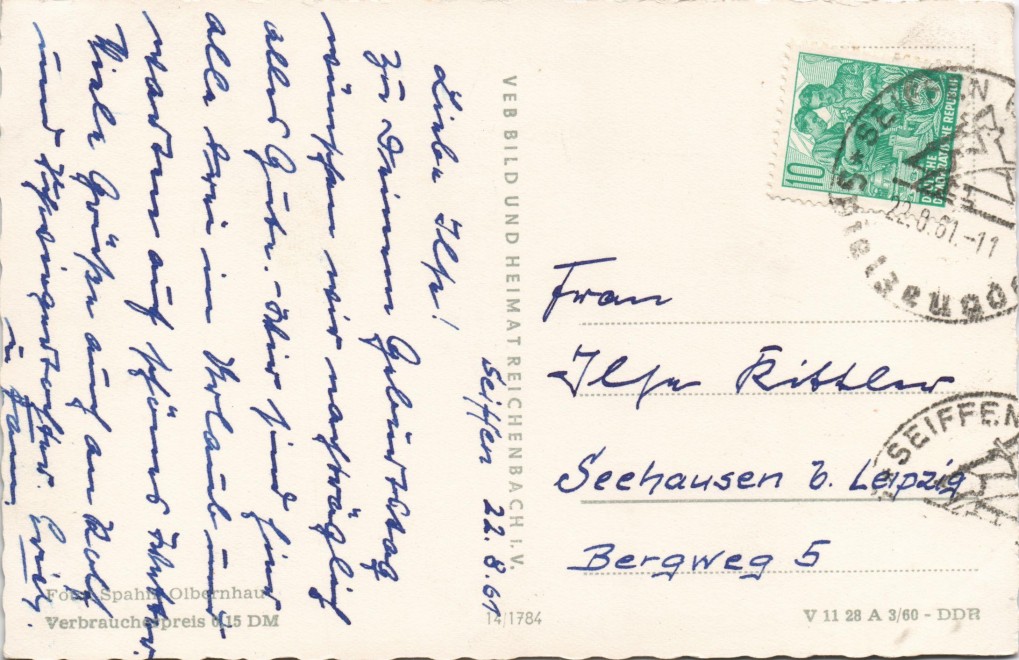 Seiffen 22.8.61
Liebe Ilse!
Zu Deinem Geburtstag
wünschen wir nachträglich
alles Gute. - Wir sind hier
alle drei in Urlaub und
warten auf schönes Wetter.
Viele Grüße auch an Rolf
und Schwiegertochter. Erich
u. Fam.
VEB BILD UND HEIMAT REICHENBACH I. V.
10
DEUTSCHE
DEMOKRATISCHE REPUBLIK
SEIFFEN
22.8.61.-11
Spielzeug
SEIFFEN
Frau
Ilse Kittler
Seehausen b. Leipzig
Bergweg 5
Foto: Spahn, Olbernhau
Verbraucherpreis 0,15 DM
14/1784
V 11 28 A 3/60 - DDR